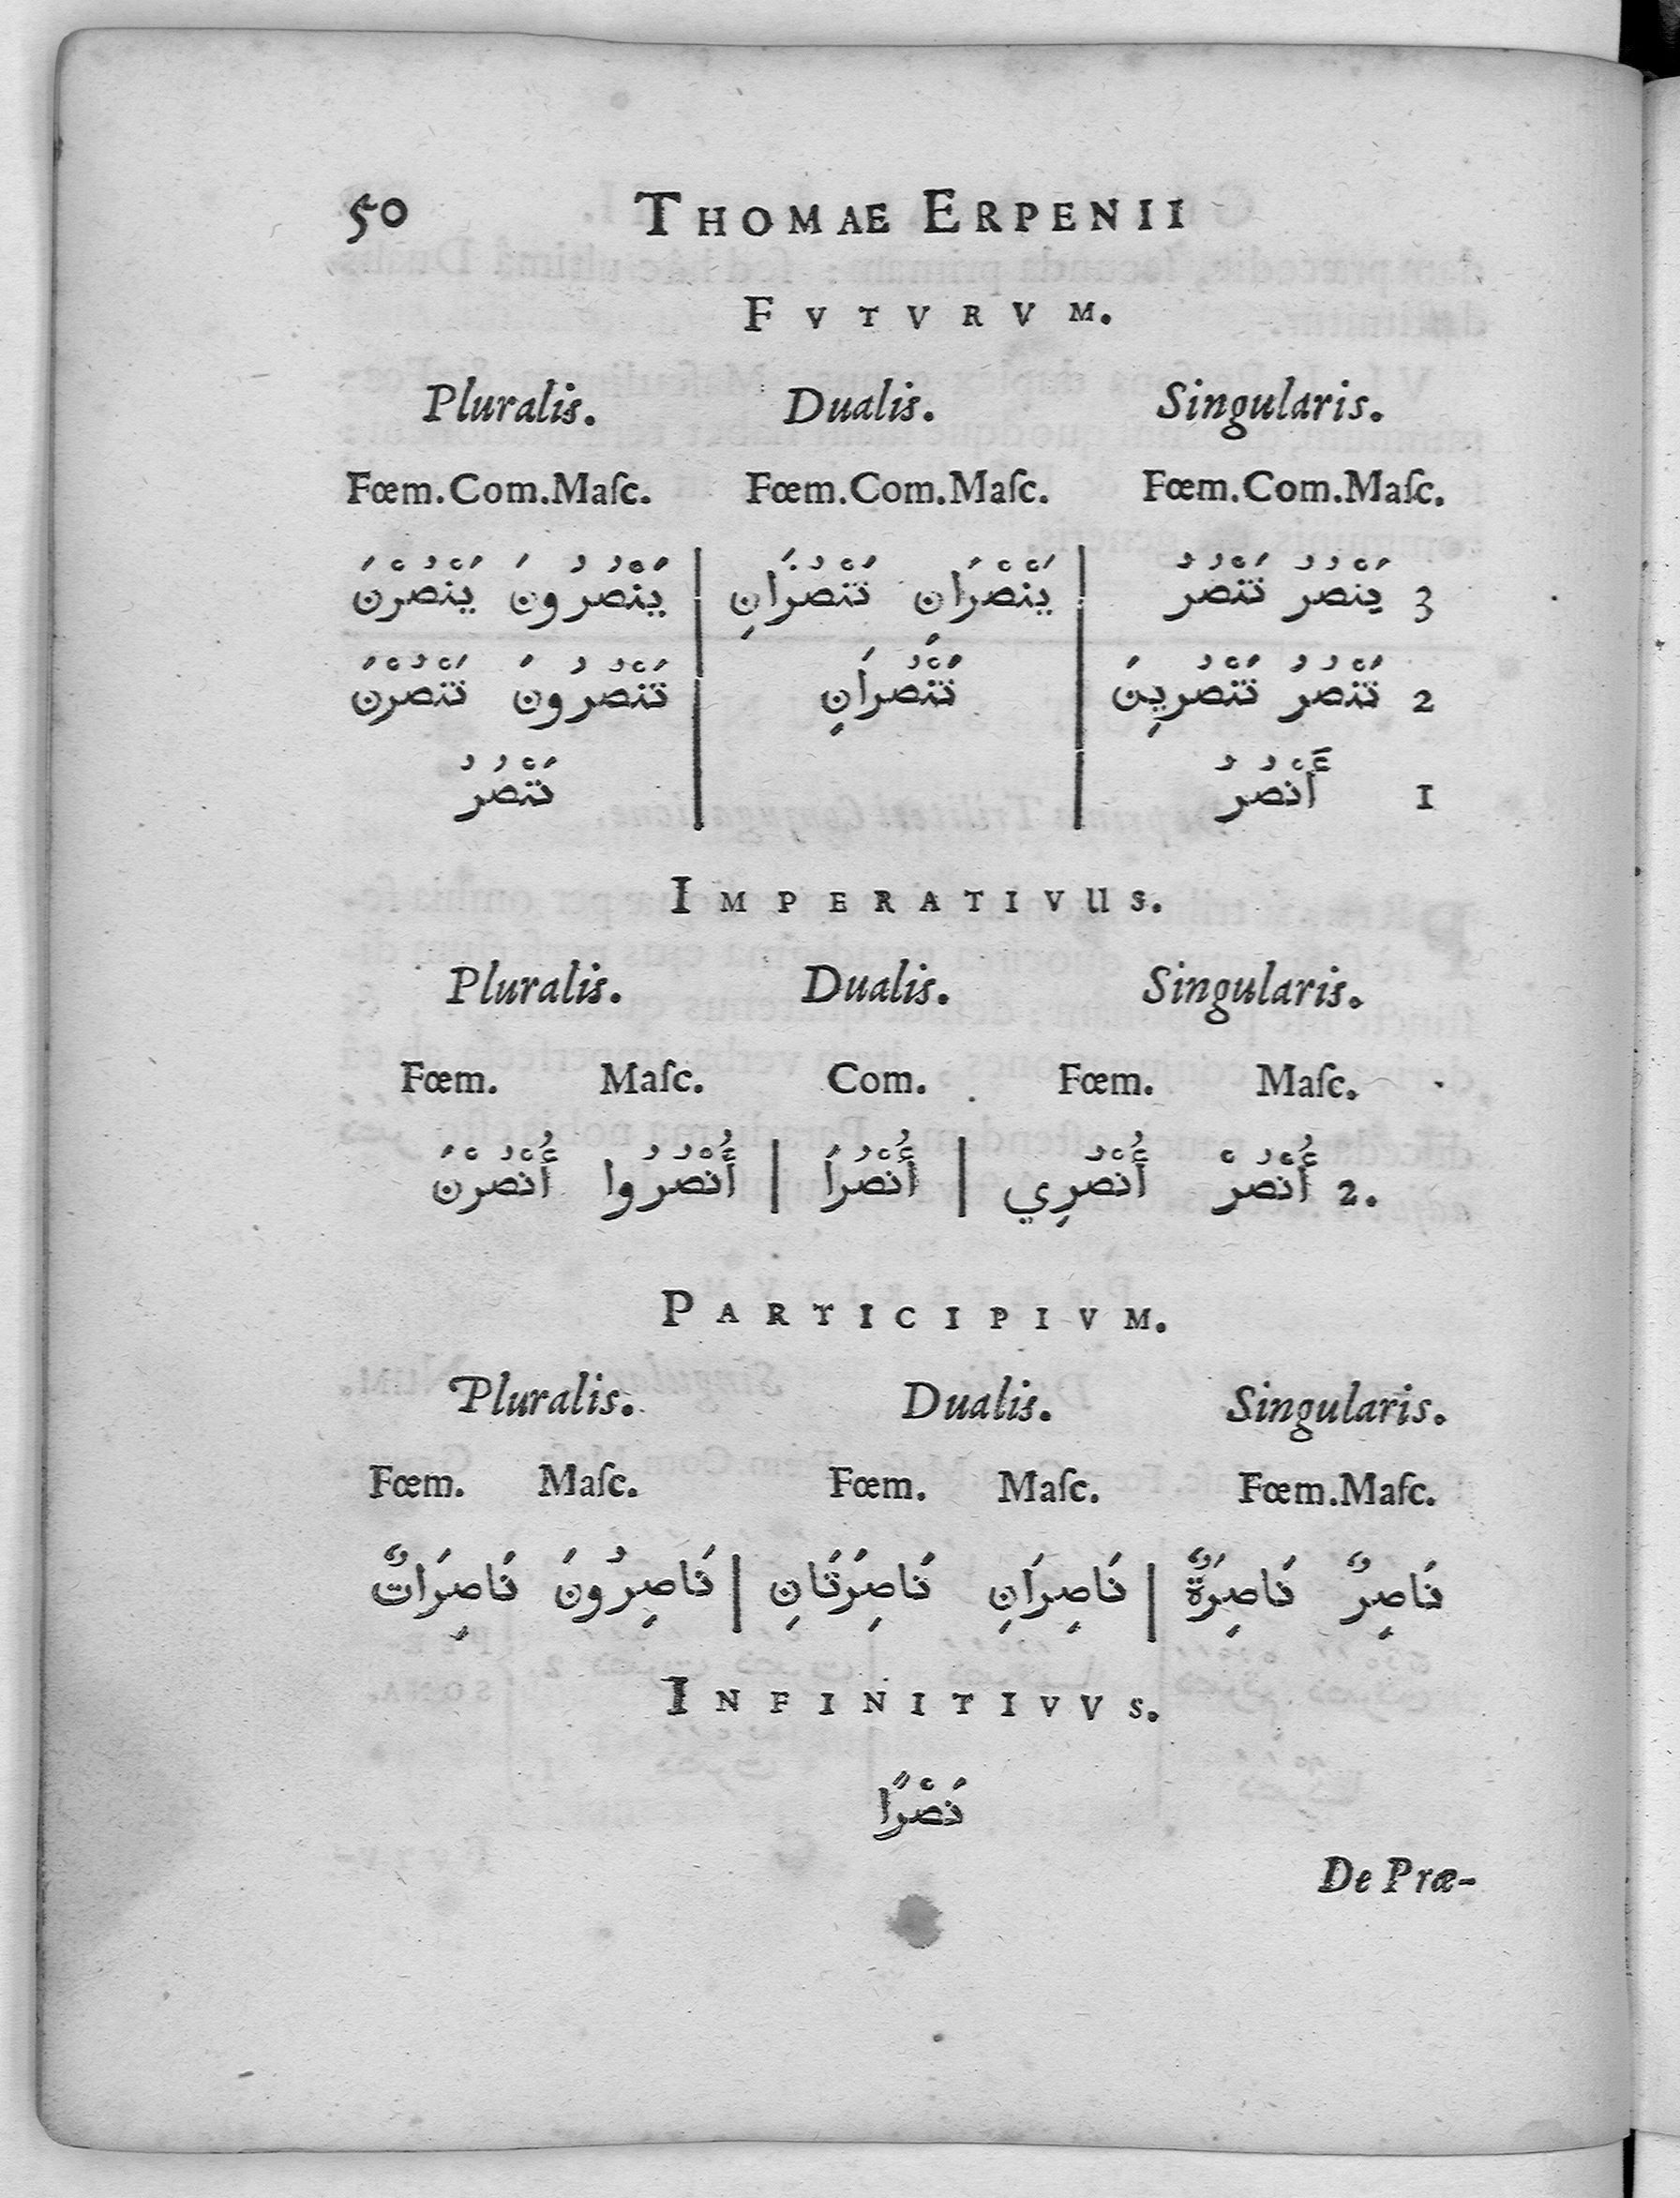 50 THOMAE ERPENII
FVTVRVM.
Pluralis. Dualis. Singularis.
Fœm.Com.Maſc. Fœm.Com.Maſc. Fœm.Com.Maſc.
3 يَنْصُرُ تَنْصُرُ | يَنْصْرَانِ تَنْصُرَانِ | يَنْصُرُونَ يَنْصُرْنَ
2 تَنْصُرُ تَنْصُرِينَ | تَنْصُرَانِ | تَنْصُرُونَ تَنْصُرْنَ
1 أَنْصُرُ | | نَنْصُرُ
IMPERATIVUS.
Pluralis. Dualis. Singularis.
Fœm. Maſc. Com. Fœm. Maſc.
2. أُنْصُرْ أُنْصُرِي | أُنْصُرَا | أُنْصُرُوا أُنْصُرْنَ
PARTICIPIVM.
Pluralis. Dualis. Singularis.
Fœm. Maſc. Fœm. Maſc. Fœm.Maſc.
نَاصِرٌ نَاصِرَةٌ | نَاصِرَانِ نَاصِرَتَانِ | نَاصِرُونَ نَاصِرَاتٌ
INFINITIVVS.
نَصْرًا
De Præ-